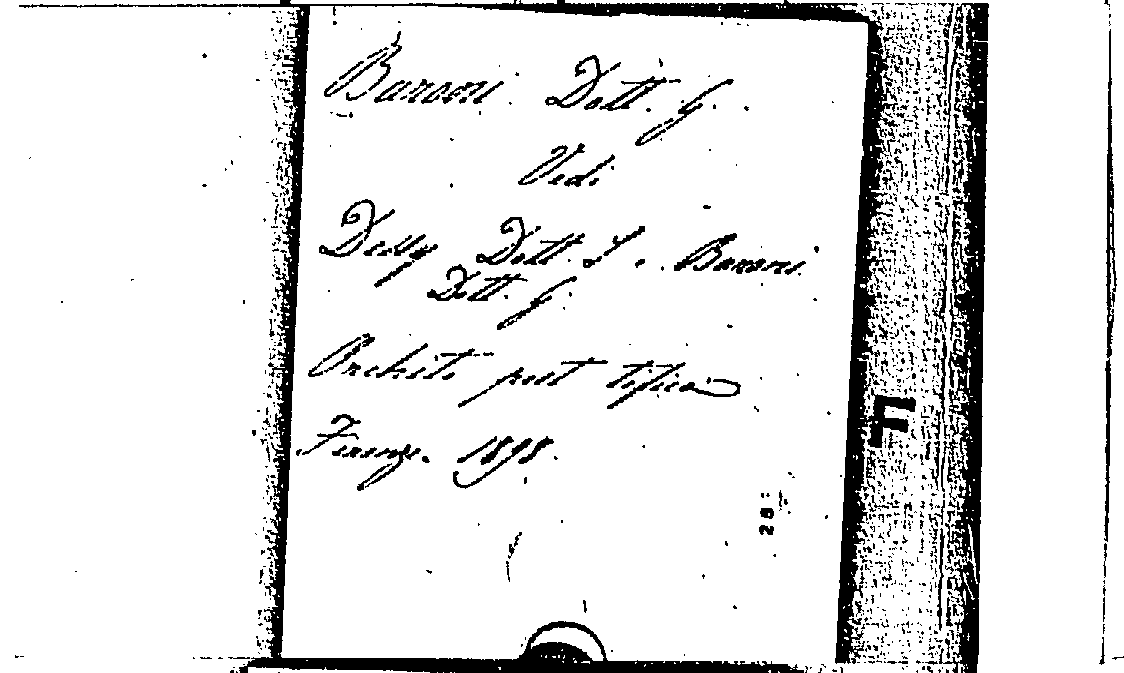 Baroni Dott. G.
Vedi
Dotti. S. e. Baroni
Dott. G.
Orchite post tifica
Firenze. 1898.
F